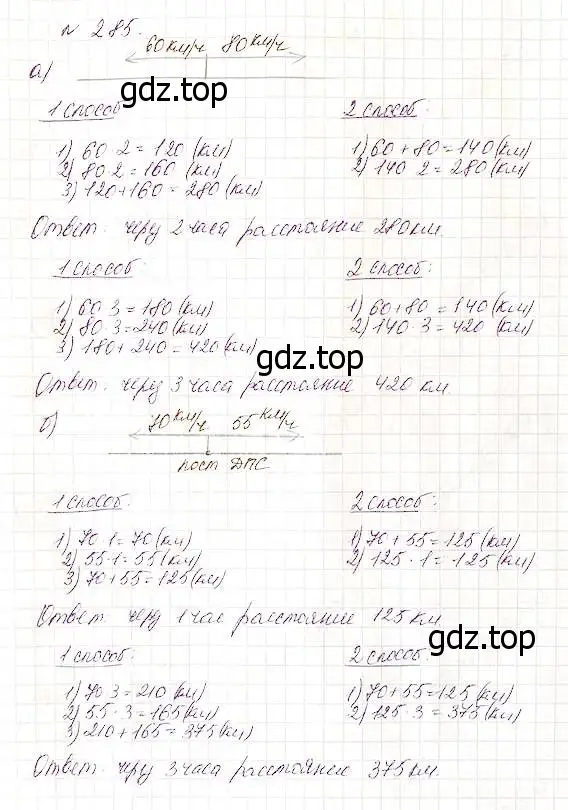 № 285.
60 км/ч 80 км/ч
а)
1 способ 2 способ:
1) 60 · 2 = 120 (км) 1) 60 + 80 = 140 (км)
2) 80 · 2 = 160 (км) 2) 140 · 2 = 280 (км)
3) 120 + 160 = 280 (км)
Ответ: через 2 часа расстояние 280 км.
1 способ: 2 способ:
1) 60 · 3 = 180 (км) 1) 60 + 80 = 140 (км)
2) 80 · 3 = 240 (км) 2) 140 · 3 = 420 (км)
3) 180 + 240 = 420 (км)
Ответ: через 3 часа расстояние 420 км.
б) 70 км/ч 55 км/ч
пост ДПС
1 способ: 2 способ:
1) 70 · 1 = 70 (км) 1) 70 + 55 = 125 (км)
2) 55 · 1 = 55 (км) 2) 125 · 1 = 125 (км)
3) 70 + 55 = 125 (км)
Ответ: через 1 час расстояние 125 км
1 способ: 2 способ:
1) 70 · 3 = 210 (км) 1) 70 + 55 = 125 (км)
2) 55 · 3 = 165 (км) 2) 125 · 3 = 375 (км)
3) 210 + 165 = 375 (км)
Ответ: через 3 часа расстояние 375 км.
gdz.top
gdz.top
gdz.top
gdz.top